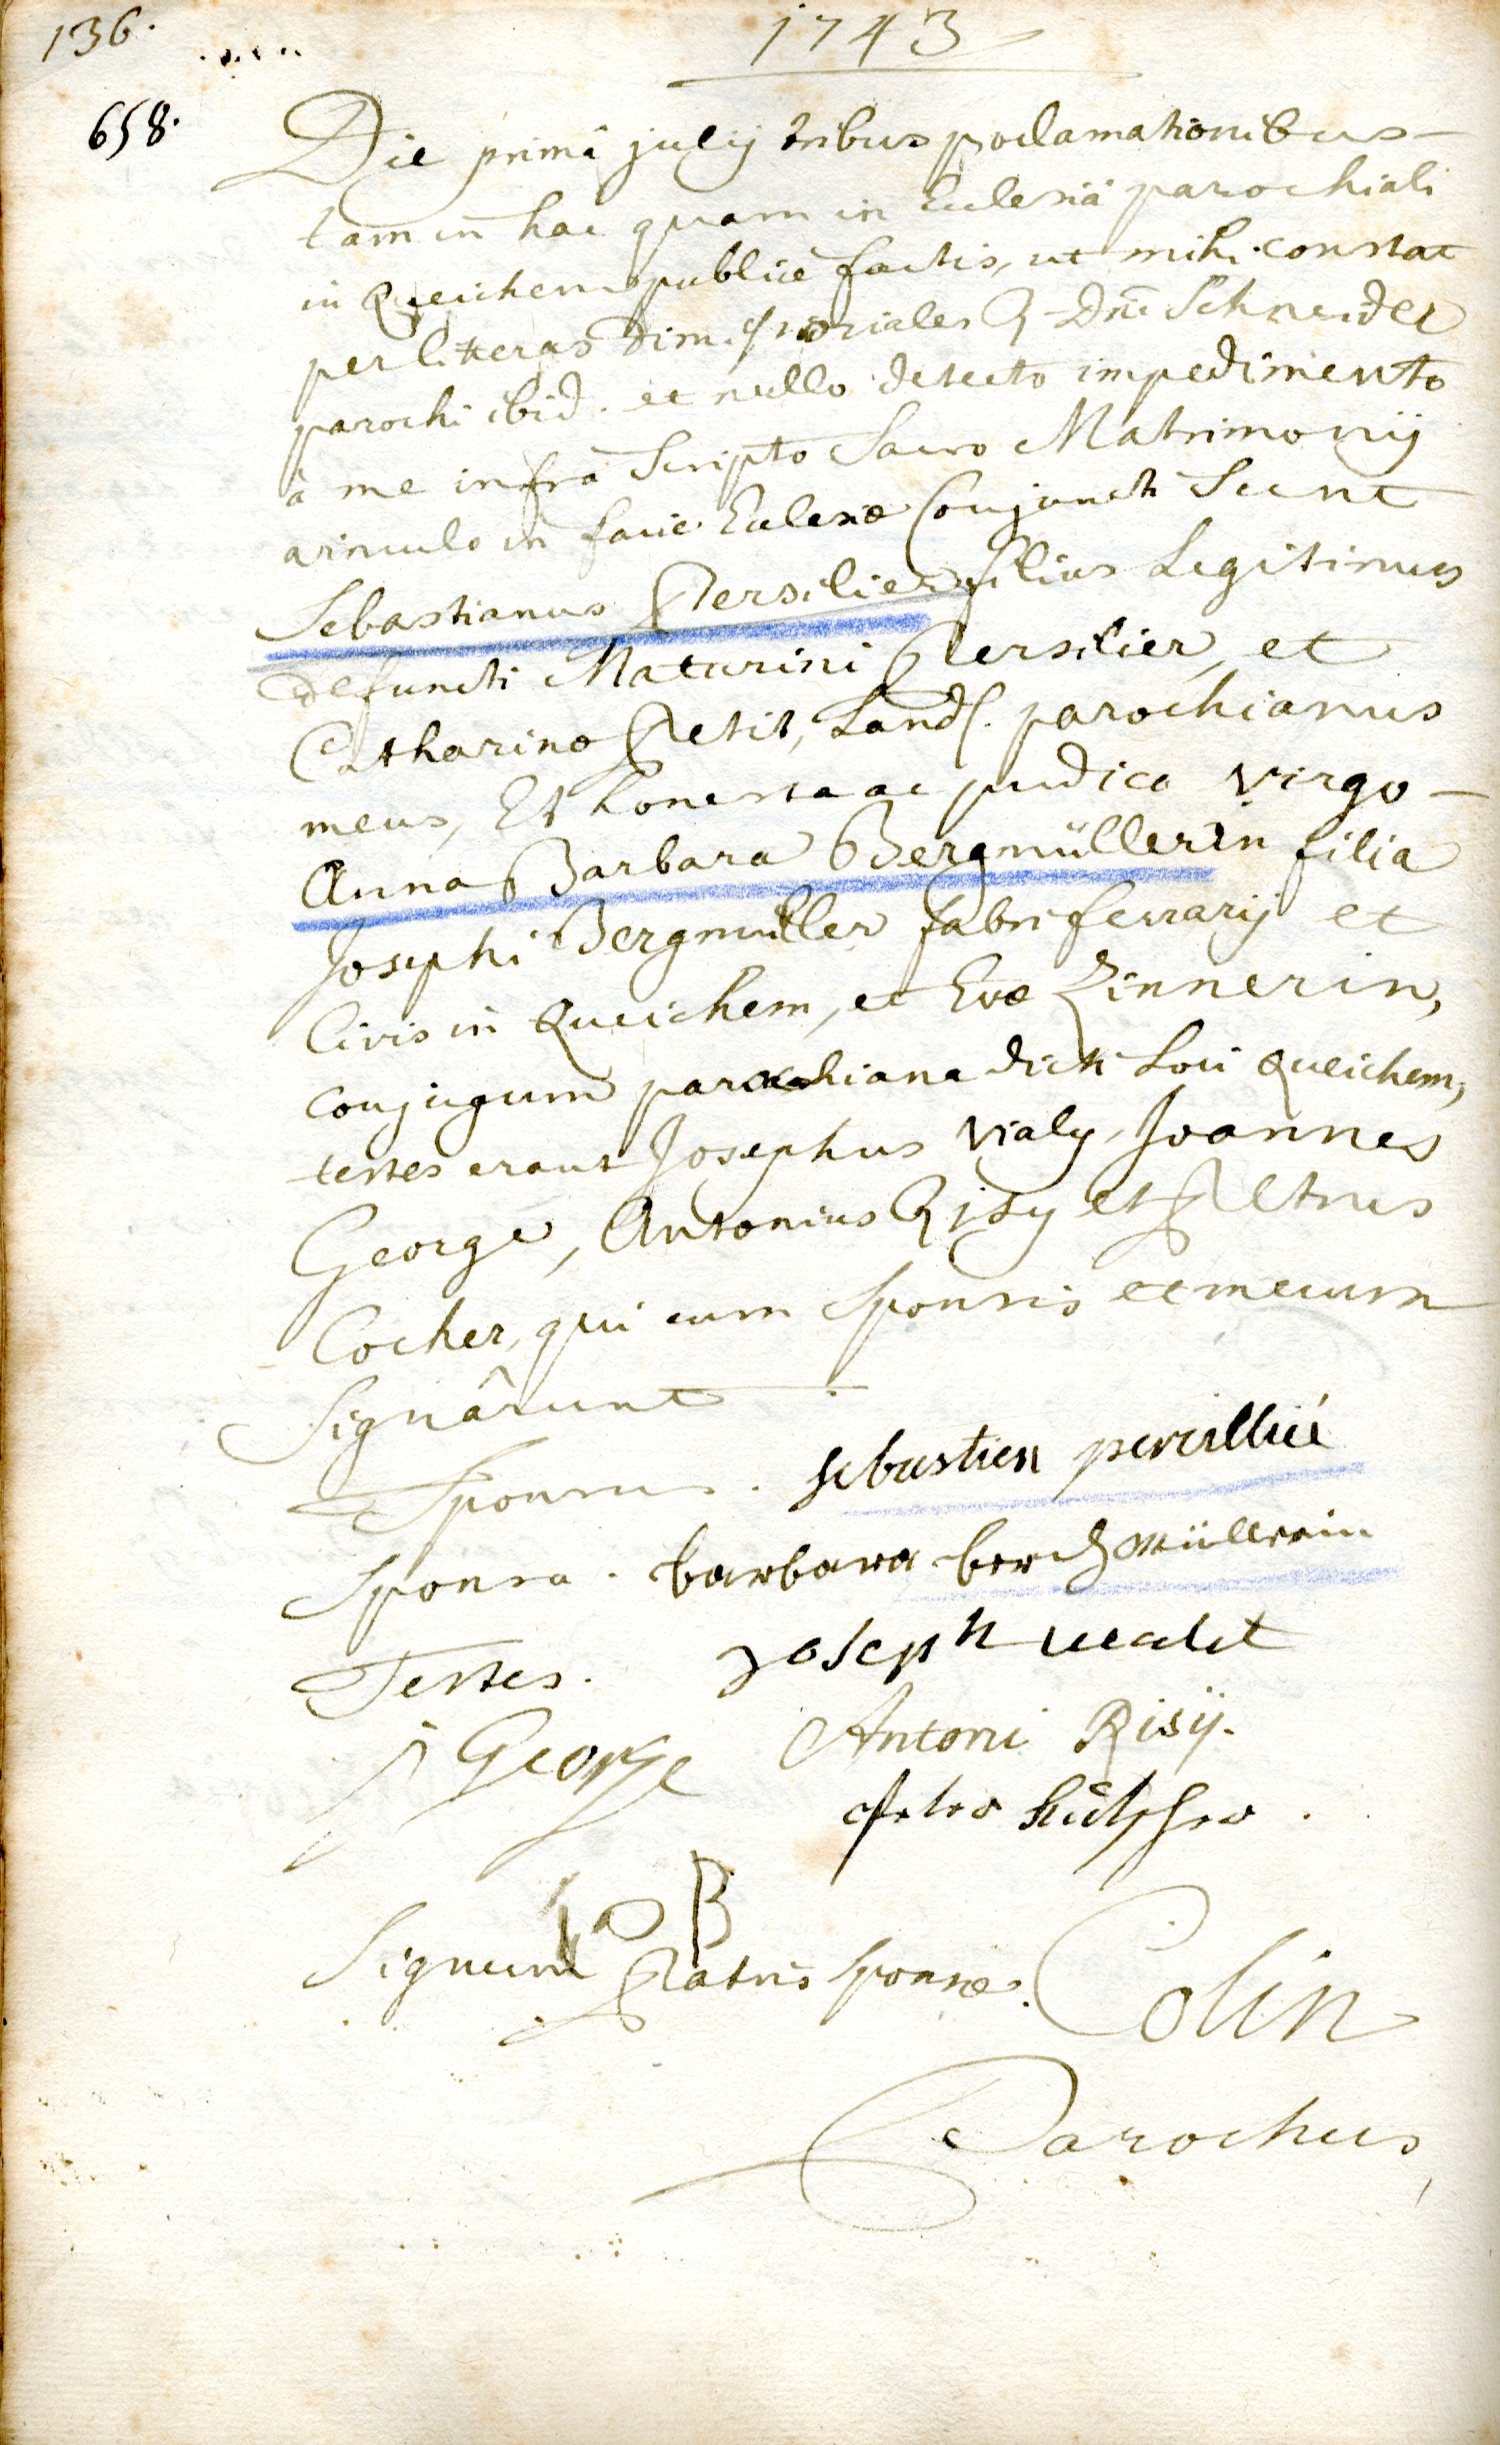 136.
1743
658.
Die primâ julij tribus proclamationibus
tam in hac quam in Ecclesiâ parochiali
in Queichem publicè factis, ut mihi constat
per litteras dimissoriales R. Dni Schneider
parochi ibid. et nullo detecto impedimento
à me infrà Scripto Sacro Matrimonij
vinculo in facie Ecclesiæ Conjuncti Sunt
Sebastianus Persilier filius Legitimus
defuncti Maturini Persilier, et
Catharinæ Petit, Land. parochianus
meus, Et honesta ac pudica virgo
Anna Barbara Bergmüllerin filia
Josephi Bergmüller fabri ferrarij et
Civis in Queichem, et Evæ Zinnerin,
conjugum parochiana dicti Loci Queichem,
testes erant Josephus Vialy, Joannes
George, Antonius Risy et Petrus
Cocher, qui cum Sponsis et mecum
Signârunt
Sponsus. sebastien percillié
Sponsa. barbara berchmüllerin
Testes. Joseph
J George Antoni Risÿ.
Peter Kutscher.
B
Signum Patris Sponsæ. Colin
Parochus